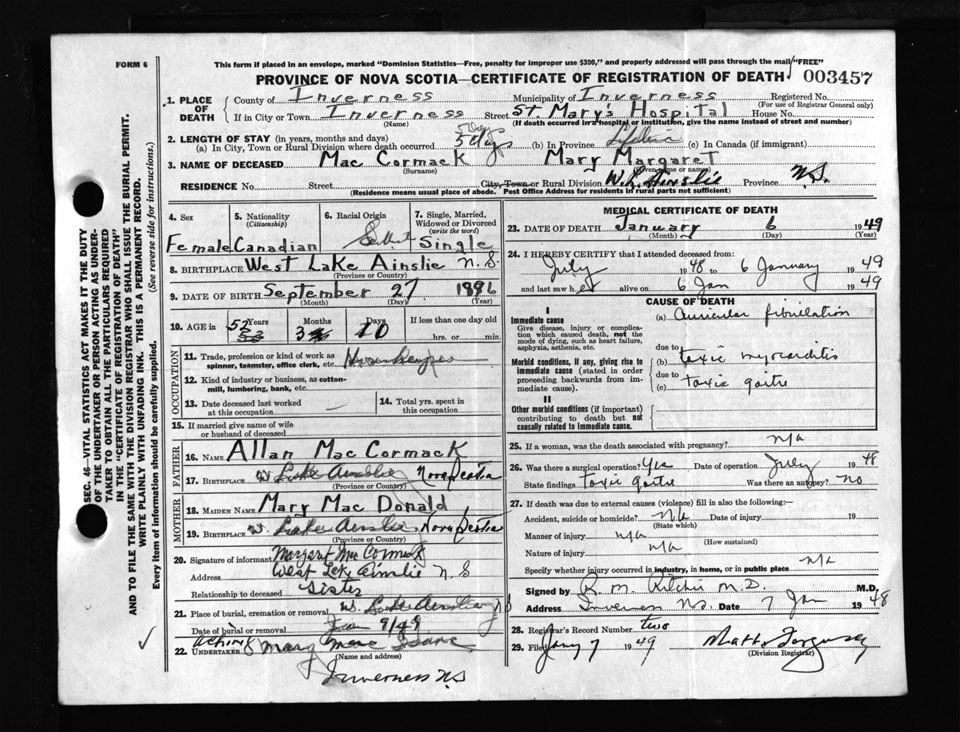 FORM 6
This form if placed in an envelope, marked "Dominion Statistics—Free, penalty for improper use $300," and properly addressed will pass through the mail "FREE"
PROVINCE OF NOVA SCOTIA—CERTIFICATE OF REGISTRATION OF DEATH 003457
1. PLACE OF DEATH County of Inverness Municipality of Inverness Registered No.
(For use of Registrar General only)
If in City or Town Inverness Street St. Mary's Hospital House No.
(Name) (If death occurred in a hospital or institution, give the name instead of street and number)
2. LENGTH OF STAY (in years, months and days)
(a) In City, Town or Rural Division where death occurred 5 days (b) In Province Lifetime (c) In Canada (if immigrant)
3. NAME OF DECEASED Mac Cormack Mary Margaret
(Surname) (Given name or names)
RESIDENCE No. Street City, Town or Rural Division W. L. Ainslie Province N.S.
(Residence means usual place of abode. Post Office Address for residents in rural parts not sufficient)
4. Sex 5. Nationality (Citizenship) 6. Racial Origin 7. Single, Married, Widowed or Divorced (write the word)
Female Canadian Single
8. BIRTHPLACE West Lake Ainslie N.S.
(Province or Country)
9. DATE OF BIRTH September 27 1896
(Month) (Day) (Year)
10. AGE in 52 Years 3 Months 10 Days If less than one day old
hrs. or min.
OCCUPATION
11. Trade, profession or kind of work as spinner, teamster, office clerk, etc. Housekeeper
12. Kind of industry or business, as cotton-mill, lumbering, bank, etc.
13. Date deceased last worked at this occupation — 14. Total yrs. spent in this occupation
15. If married give name of wife or husband of deceased
FATHER
16. NAME Allan Mac Cormack
17. BIRTHPLACE W Lake Ainslie Nova Scotia
(Province or Country)
MOTHER
18. MAIDEN NAME Mary Mac Donald
19. BIRTHPLACE W Lake Ainslie Nova Scotia
(Province or Country)
20. Signature of informant Margaret Mac Cormack
Address West Lake Ainslie N S
Relationship to deceased Sister
21. Place of burial, cremation or removal W. Lake Ainslie N S
Date of burial or removal Jan 9/49
22. UNDERTAKER Acting Mary Mac Isaac
(Name and address)
Inverness N.S
MEDICAL CERTIFICATE OF DEATH
23. DATE OF DEATH January 6 1949
(Month) (Day) (Year)
24. I HEREBY CERTIFY that I attended deceased from:
July 1948 to 6 January 1949
and last saw her alive on 6 Jan 1949
CAUSE OF DEATH
I
Immediate cause (a) Auricular fibrillation
Give disease, injury or complication which caused death, not the mode of dying, such as heart failure, asphyxia, asthenia, etc.
due to
Morbid conditions, if any, giving rise to immediate cause (stated in order proceeding backwards from immediate cause). (b) toxic myocarditis
due to
(c) toxic goitre
II
Other morbid conditions (if important) contributing to death but not causally related to immediate cause.
25. If a woman, was the death associated with pregnancy? n/a
26. Was there a surgical operation? Yes Date of operation July 1948
State findings toxic goitre Was there an autopsy? no
27. If death was due to external causes (violence) fill in also the following:—
Accident, suicide or homicide? n/a Date of injury 19
(State which)
Manner of injury n/a
(How sustained)
Nature of injury n/a
Specify whether injury occurred in industry, in home, or in public place n/a
Signed by R. M. Ritchie M.D. M.D.
Address Inverness N.S. Date 7 Jan 1948
28. Registrar's Record Number two
29. Filed Jany 7 1949
(Division Registrar)
SEC. 46—VITAL STATISTICS ACT MAKES IT THE DUTY
OF THE UNDERTAKER OR PERSON ACTING AS UNDER-
TAKER TO OBTAIN ALL THE PARTICULARS REQUIRED
IN THE "CERTIFICATE OF REGISTRATION OF DEATH"
AND TO FILE THE SAME WITH THE DIVISION REGISTRAR WHO SHALL ISSUE THE BURIAL PERMIT.
WRITE PLAINLY WITH UNFADING INK. THIS IS A PERMANENT RECORD.
Every item of information should be carefully supplied. (See reverse side for instructions.)